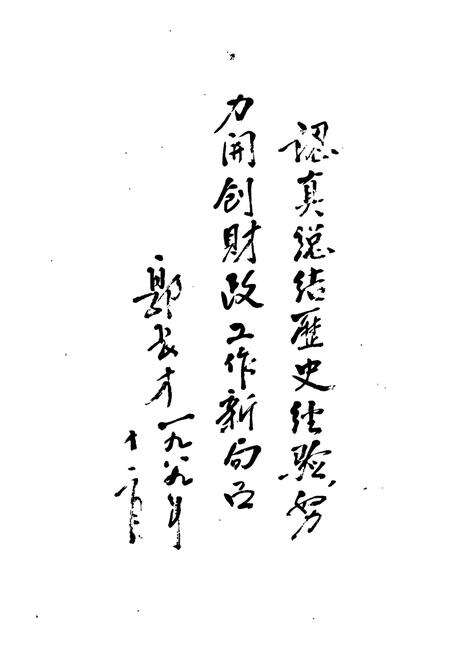 認真總结歷史经验,努
力開创財政工作新局面
郭长才一九八九年
十二月